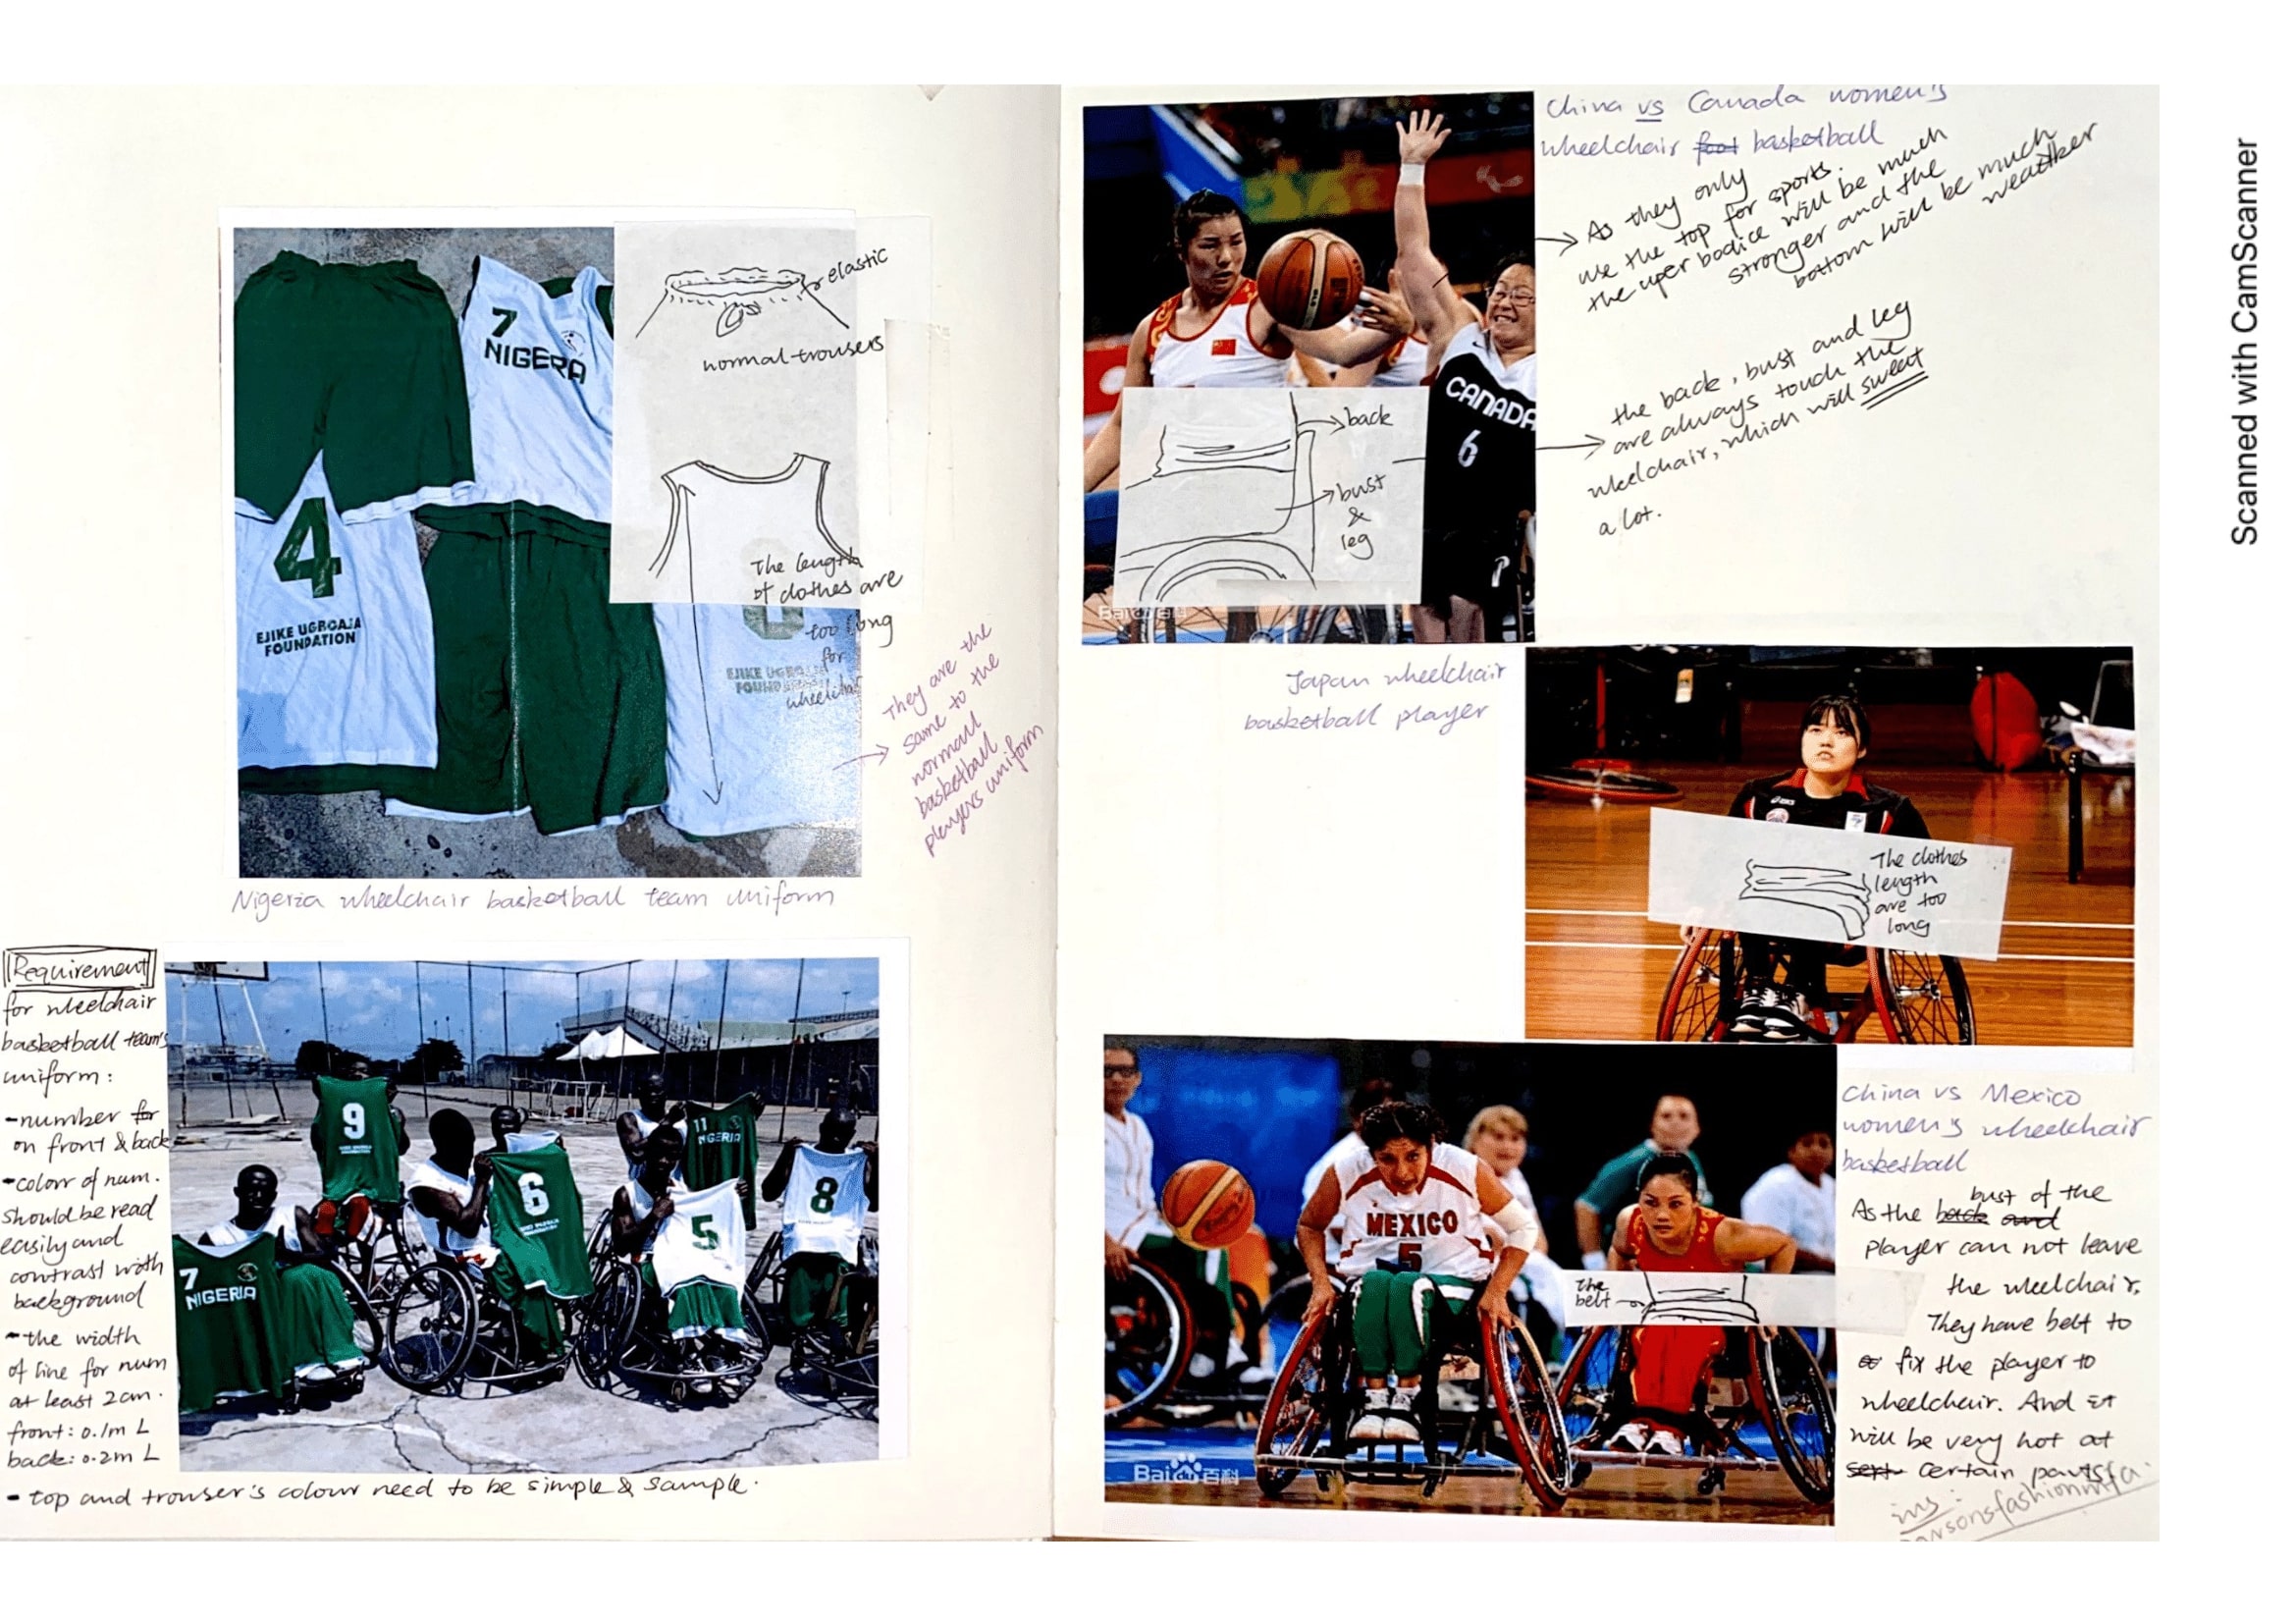 7
NIGERA
4
EJIKE UGBOAJA
FOUNDATION
elastic
normal trousers
The length
of clothes are
too long
for
wheelchair
EJIKE UGBOAJA
FOUNDATION
They are the
same to the
normall
basketball
players uniform
Nigeria wheelchair basketball team uniform
Requirement
for wheelchair
basketball team's
uniform:
-number for
on front & back
-colorr of num.
should be read
easily and
contrast with
background
-the width
of line for num
at least 2cm.
front: 0.1m L
back: 0.2m L
- top and trouser's colour need to be simple & sample.
9
11
NIGERIA
6
5
8
7
NIGERIA
China vs Canada women's
wheelchair foot basketball
As they only
use the top for sports.
the uper bodice will be much
stronger and the
bottom will be much
weather
the back, bust and leg
are always touch the
wheelchair, which will sweat
a lot.
CANADA
6
back
bust
&
leg
Japan wheelchair
basketball player
The clothes
length
are too
long
MEXICO
5
the
belt
Baidu百科
China vs Mexico
women's wheelchair
basketball
As the back and bust of the
player can not leave
the wheelchair.
They have belt to
fix the player to
wheelchair. And it
will be very hot at
certain parts
ins:
parsonsfashionmfa
Scanned with CamScanner